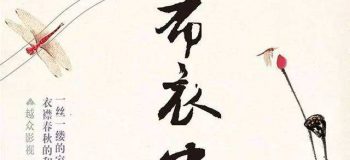 布衣
一丝一缕的
衣襟春秋的
越众影视